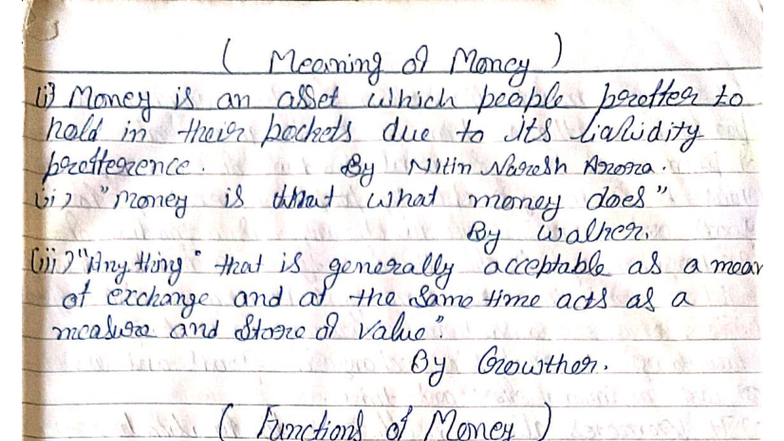 ( Meaning of Money )
(i) Money is an asset which people preffer to
hold in their pockets due to its liqluidity
prefference. By Nitin Naresh Arora.
(ii) "Money is that what money does"
By Walker.
(iii) "Any thing" that is generally acceptable as a mean
of exchange and at the same time acts as a
measure and store of value".
By Growther.
( Functions of Money )